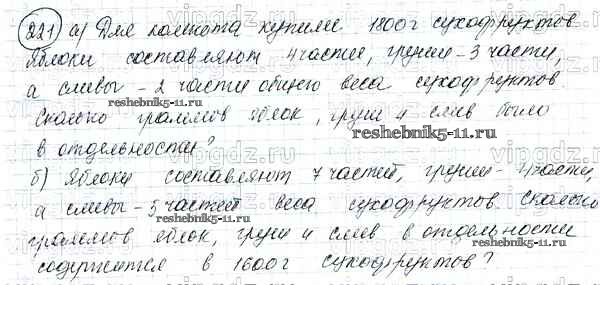 221 а) Для компота купили 1800г сухофруктов.
Яблоки составляют 4 части, груши - 3 части,
а сливы - 2 части общего веса сухофруктов.
reshebnik5-11.ru
Сколько граммов яблок, груш и слив было
reshebnik5-11.ru
в отдельности?
vipgdz.ru
б) Яблоки составляют 7 частей, груши - 4 части,
а сливы - 5 частей веса сухофруктов. Сколько
reshebnik5-11.ru
граммов яблок, груш и слив в отдельности
reshebnik5-11.ru
содержится в 1600г сухофруктов?